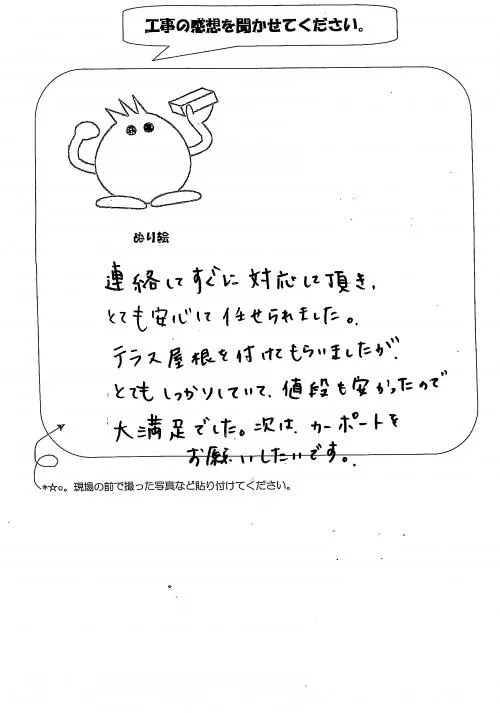 工事の感想を聞かせてください。
ぬり絵
連絡してすぐに対応して頂き、
とても安心して任せられました。
テラス屋根を付けてもらいましたが、
とてもしっかりしていて、値段も安かったので
大満足でした。次は、カーポートを
お願いしたいです。
*☆○。現場の前で撮った写真など貼り付けてください。